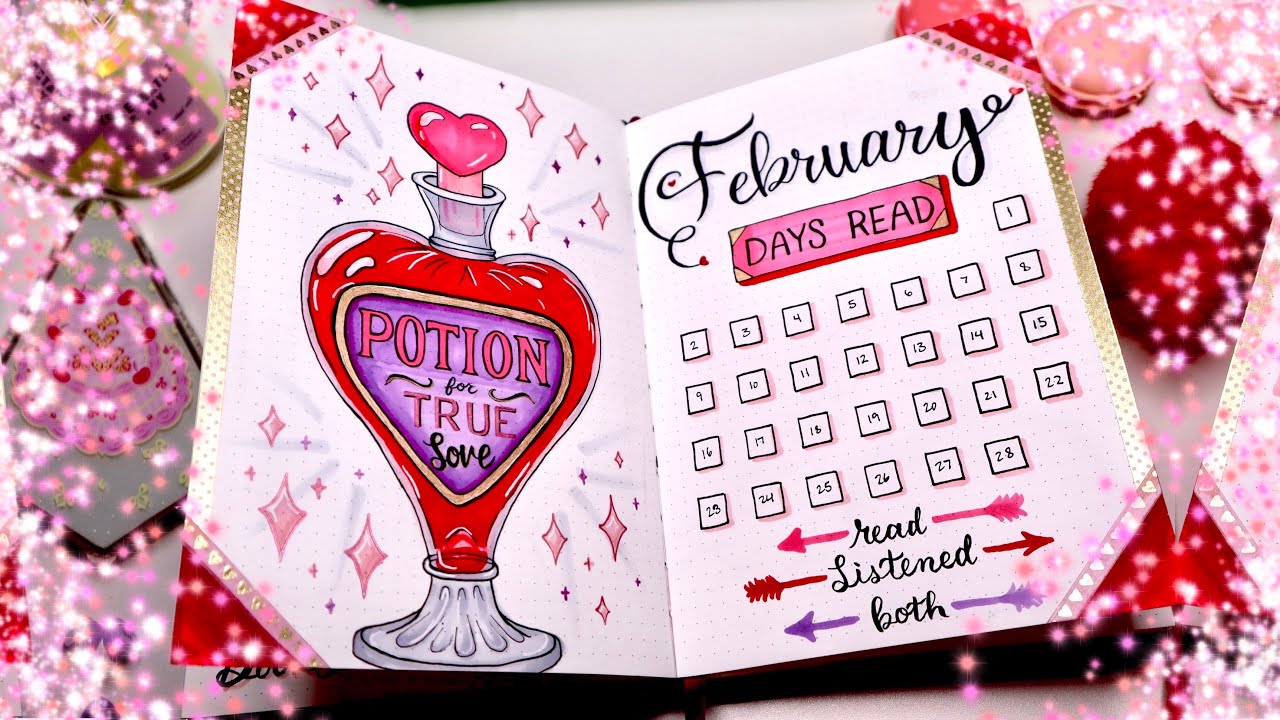 POTION
for
TRUE
Love
February
DAYS READ
1
2 3 4 5 6 7 8
9 10 11 12 13 14 15
16 17 18 19 20 21 22
23 24 25 26 27 28
read
Listened
both